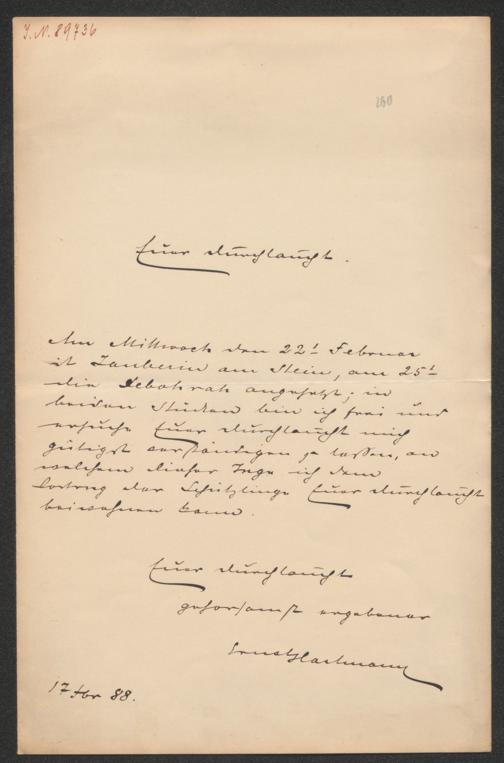 J. N. 89736
260
Euer Durchlaucht.
Am Mittwoch den 22t Februar
ist Zauberin am Stein, am 25t
die angesetzt; in
beiden Stücken bin ich frei und
ersuche Euer Durchlaucht mich
gütigst verständigen zu lassen, an
welchem dieser Tage ich dem
Vortrag der Schützlinge Euer Durchlaucht
beiwohnen kann.
Euer Durchlaucht
gehorsamst ergebener
Ernst Hartmann
17 Fbr 88.